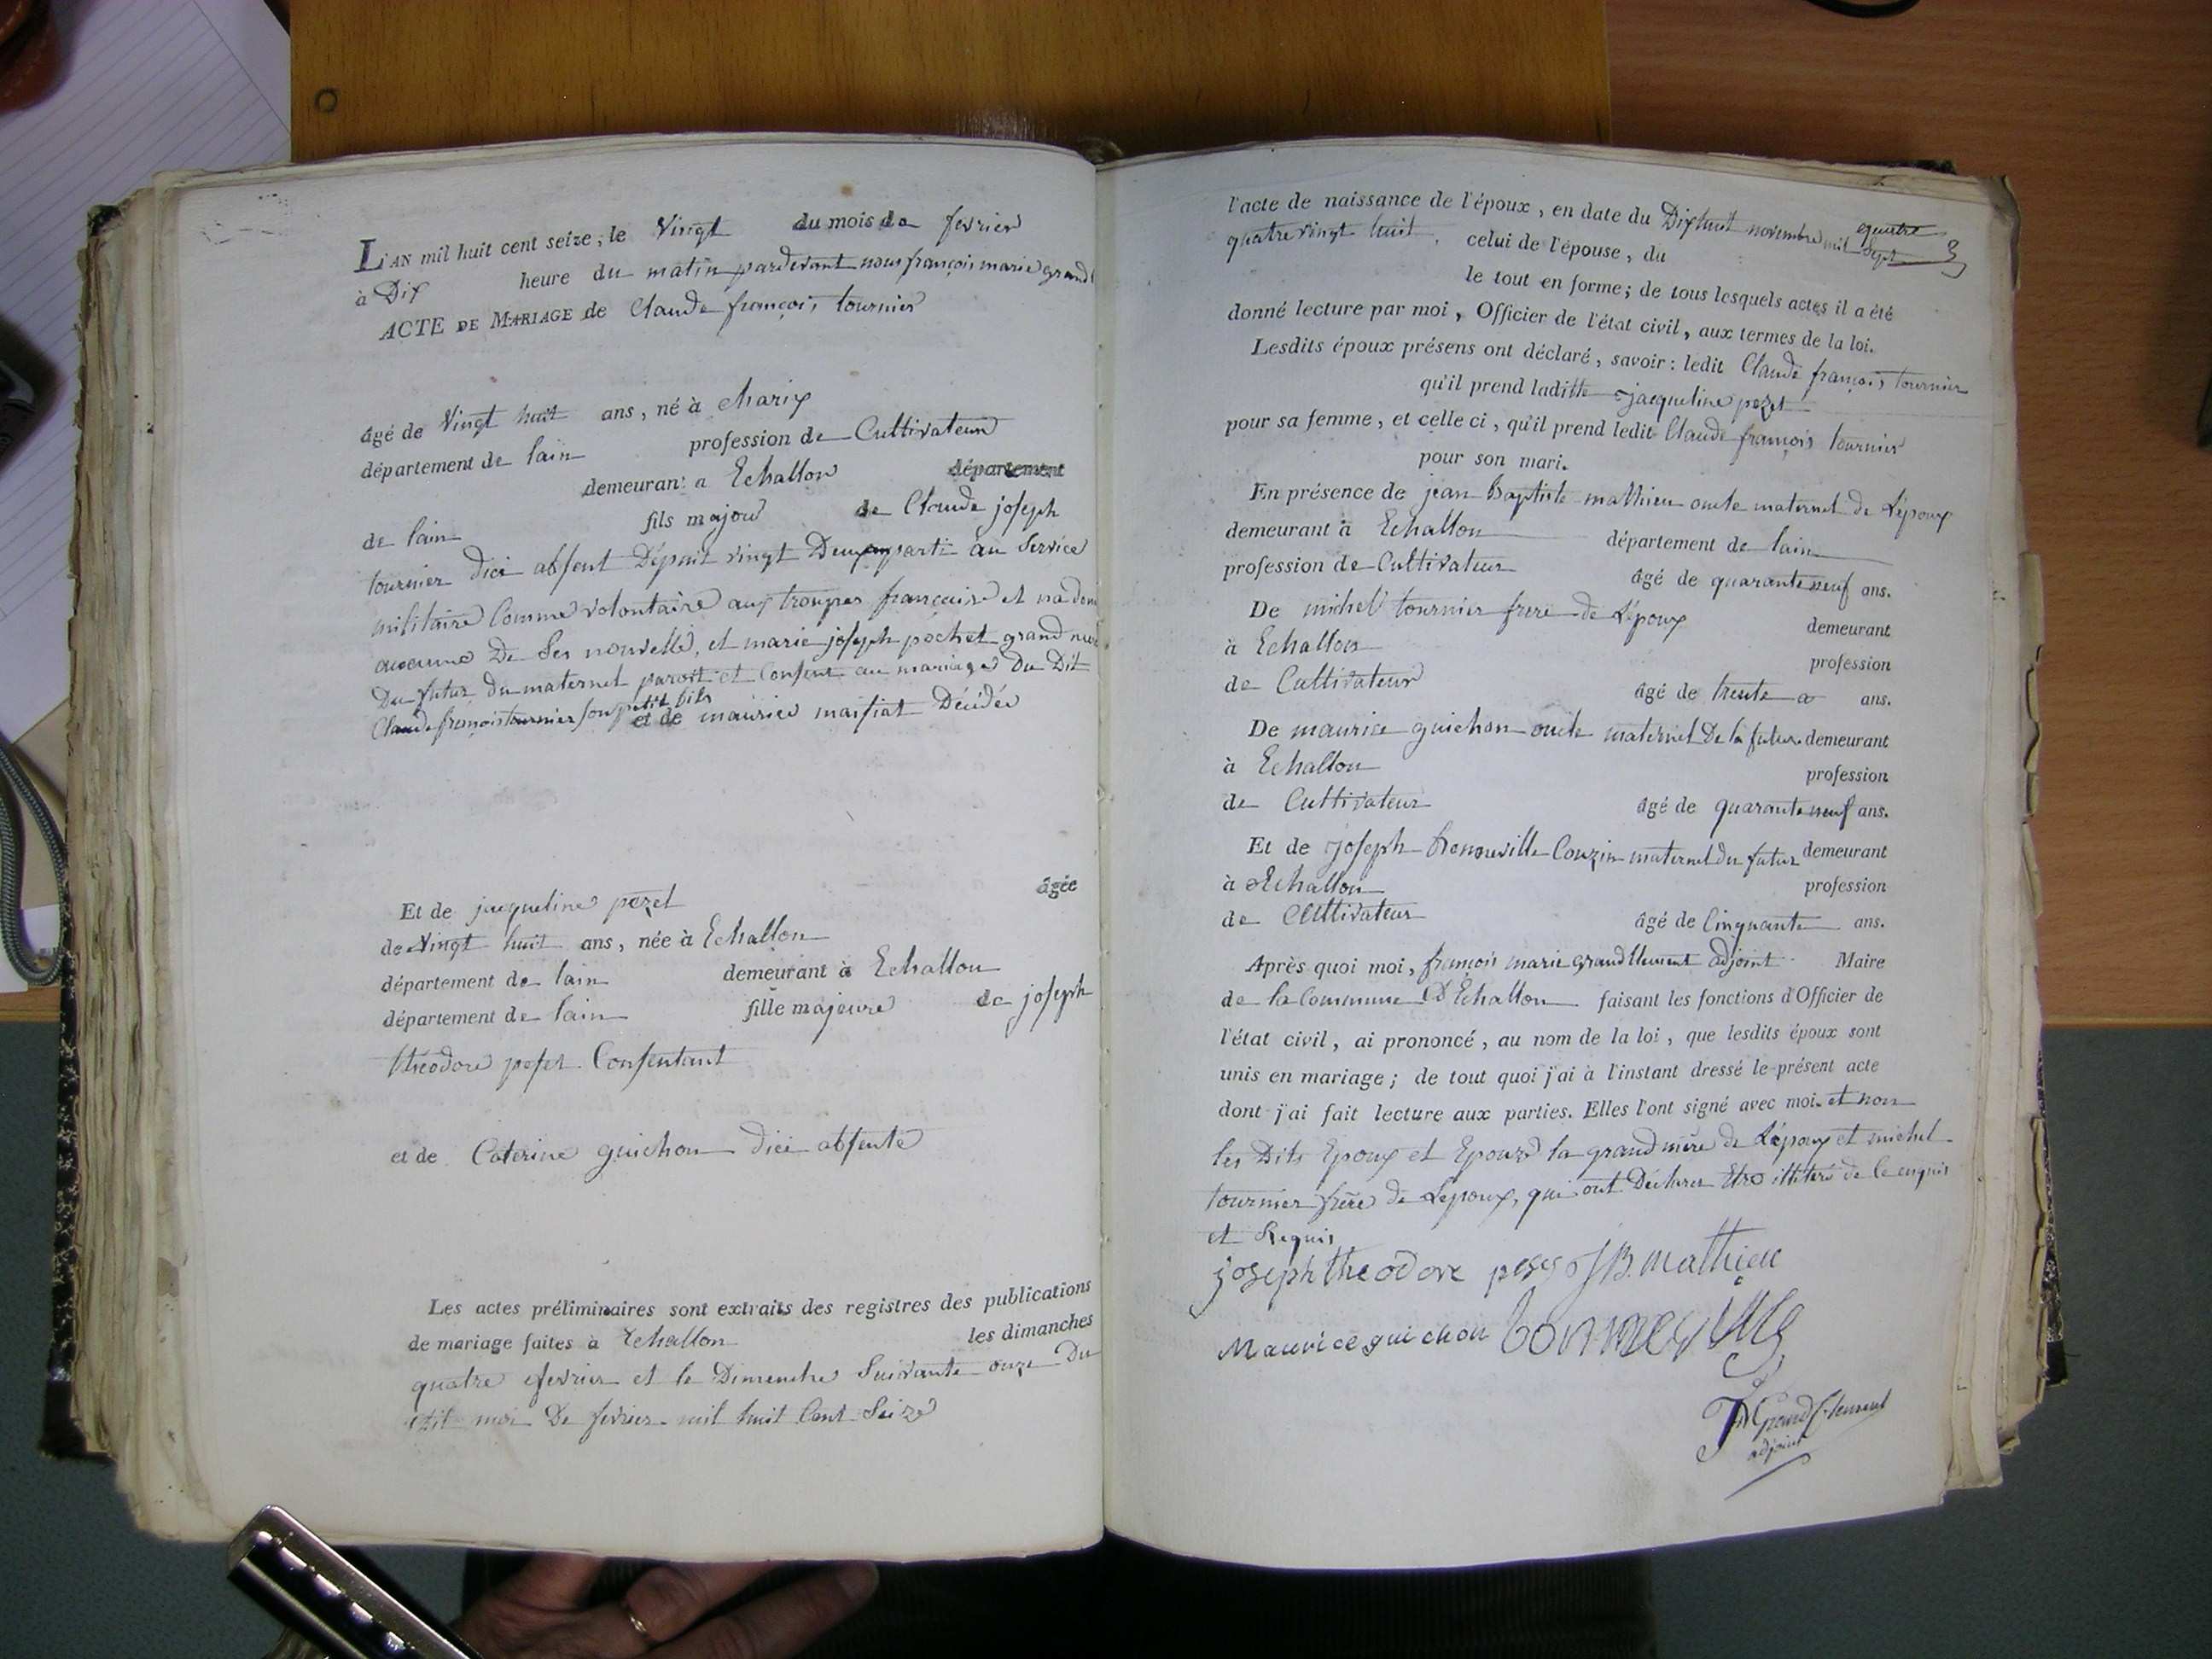 L'AN mil huit cent seize, le Vingt du mois de fevrier
à Dix heure du matin pardevant nous françois marie grand
ACTE DE MARIAGE de Claude françois tournier
âgé de Vingt huit ans, né à Charix
département de lain profession de Cultivateur
demeurant a Echallon département
de lain fils majeur de Claude joseph
tournier dici absent Dépuit vingt Deux parti au Service
militaire Comme volontaire aux troupes française et na
aucune De Ses nouvelle, et marie joseph pochet grand
Du futur Du maternel paroit et Consent au mariage Du Dit
Claude françois tournier son petit fils
et de maurice maifiat Décédée
Et de jacqueline pezet âgée
de Vingt huit ans, née à Echallon
département de lain demeurant à Echallon
département de lain fille majeure de joseph
théodore peset Consentant
et de Caterine guichon dici absente
Les actes préliminaires sont extraits des registres des publications
de mariage faites à Echallon les dimanches
quatre fevrier et le Dimenche Suivante onze Du
dit moi De fevrier mil huit Cent Seize
l'acte de naissance de l'époux, en date du Dixhuit novembre mil Sept
quatre vingt huit, celui de l'épouse, du
le tout en forme; de tous lesquels actes il a été
donné lecture par moi, Officier de l'état civil, aux termes de la loi.
Lesdits époux présens ont déclaré, savoir: ledit Claude françois tournier
qu'il prend laditte jacqueline pezet
pour sa femme, et celle ci, qu'il prend ledit Claude françois tournier
pour son mari.
En présence de jean Baptiste mathieu oncle maternel de L'époux
demeurant à Echallon département de lain
profession de Cultivateur âgé de quarante neuf ans.
De michel tournier frere de L'époux demeurant
à Echallon profession
de Cultivateur âgé de trente ans.
De maurice guichon oncle maternel De la futur demeurant
à Echallon profession
de Cultivateur âgé de quarante neuf ans.
Et de joseph bonneville Couzin maternel du futur demeurant
à Echallon profession
de Cultivateur âgé de Cinquante ans.
Après quoi moi, françois marie grandclement adjoint Maire
de la Commune D'Echallon faisant les fonctions d'Officier de
l'état civil, ai prononcé, au nom de la loi, que lesdits époux sont
unis en mariage; de tout quoi j'ai à l'instant dressé le présent acte
dont j'ai fait lecture aux parties. Elles l'ont signé avec moi. et non
les Dits Epoux et Epouze la grand mere de L'époux et michel
tournier frère de L'époux, qui ont Déclarer Etre illiteré de ce enquis
et Requis
joseph theodore J B. mathieu
Maurice guichon bonneville
fM Grandclement
adjoint